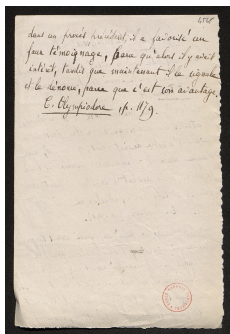 dans un procès précédent, il a favorisé un
faux témoignage, parce qu'alors il y avait
intérêt, tandis que maintenant il le signale
et le dénonce, parce que c'est son avantage.
C. Olympiodore, p. 1179.